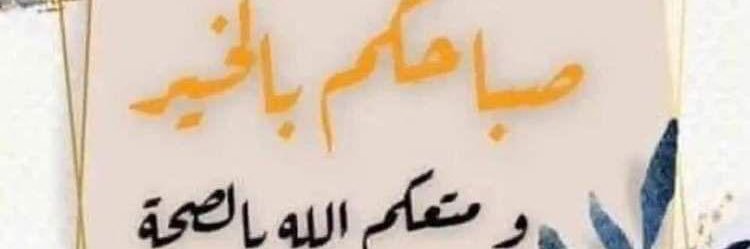 صباحكم بالخير
و متعكم الله بالصحة